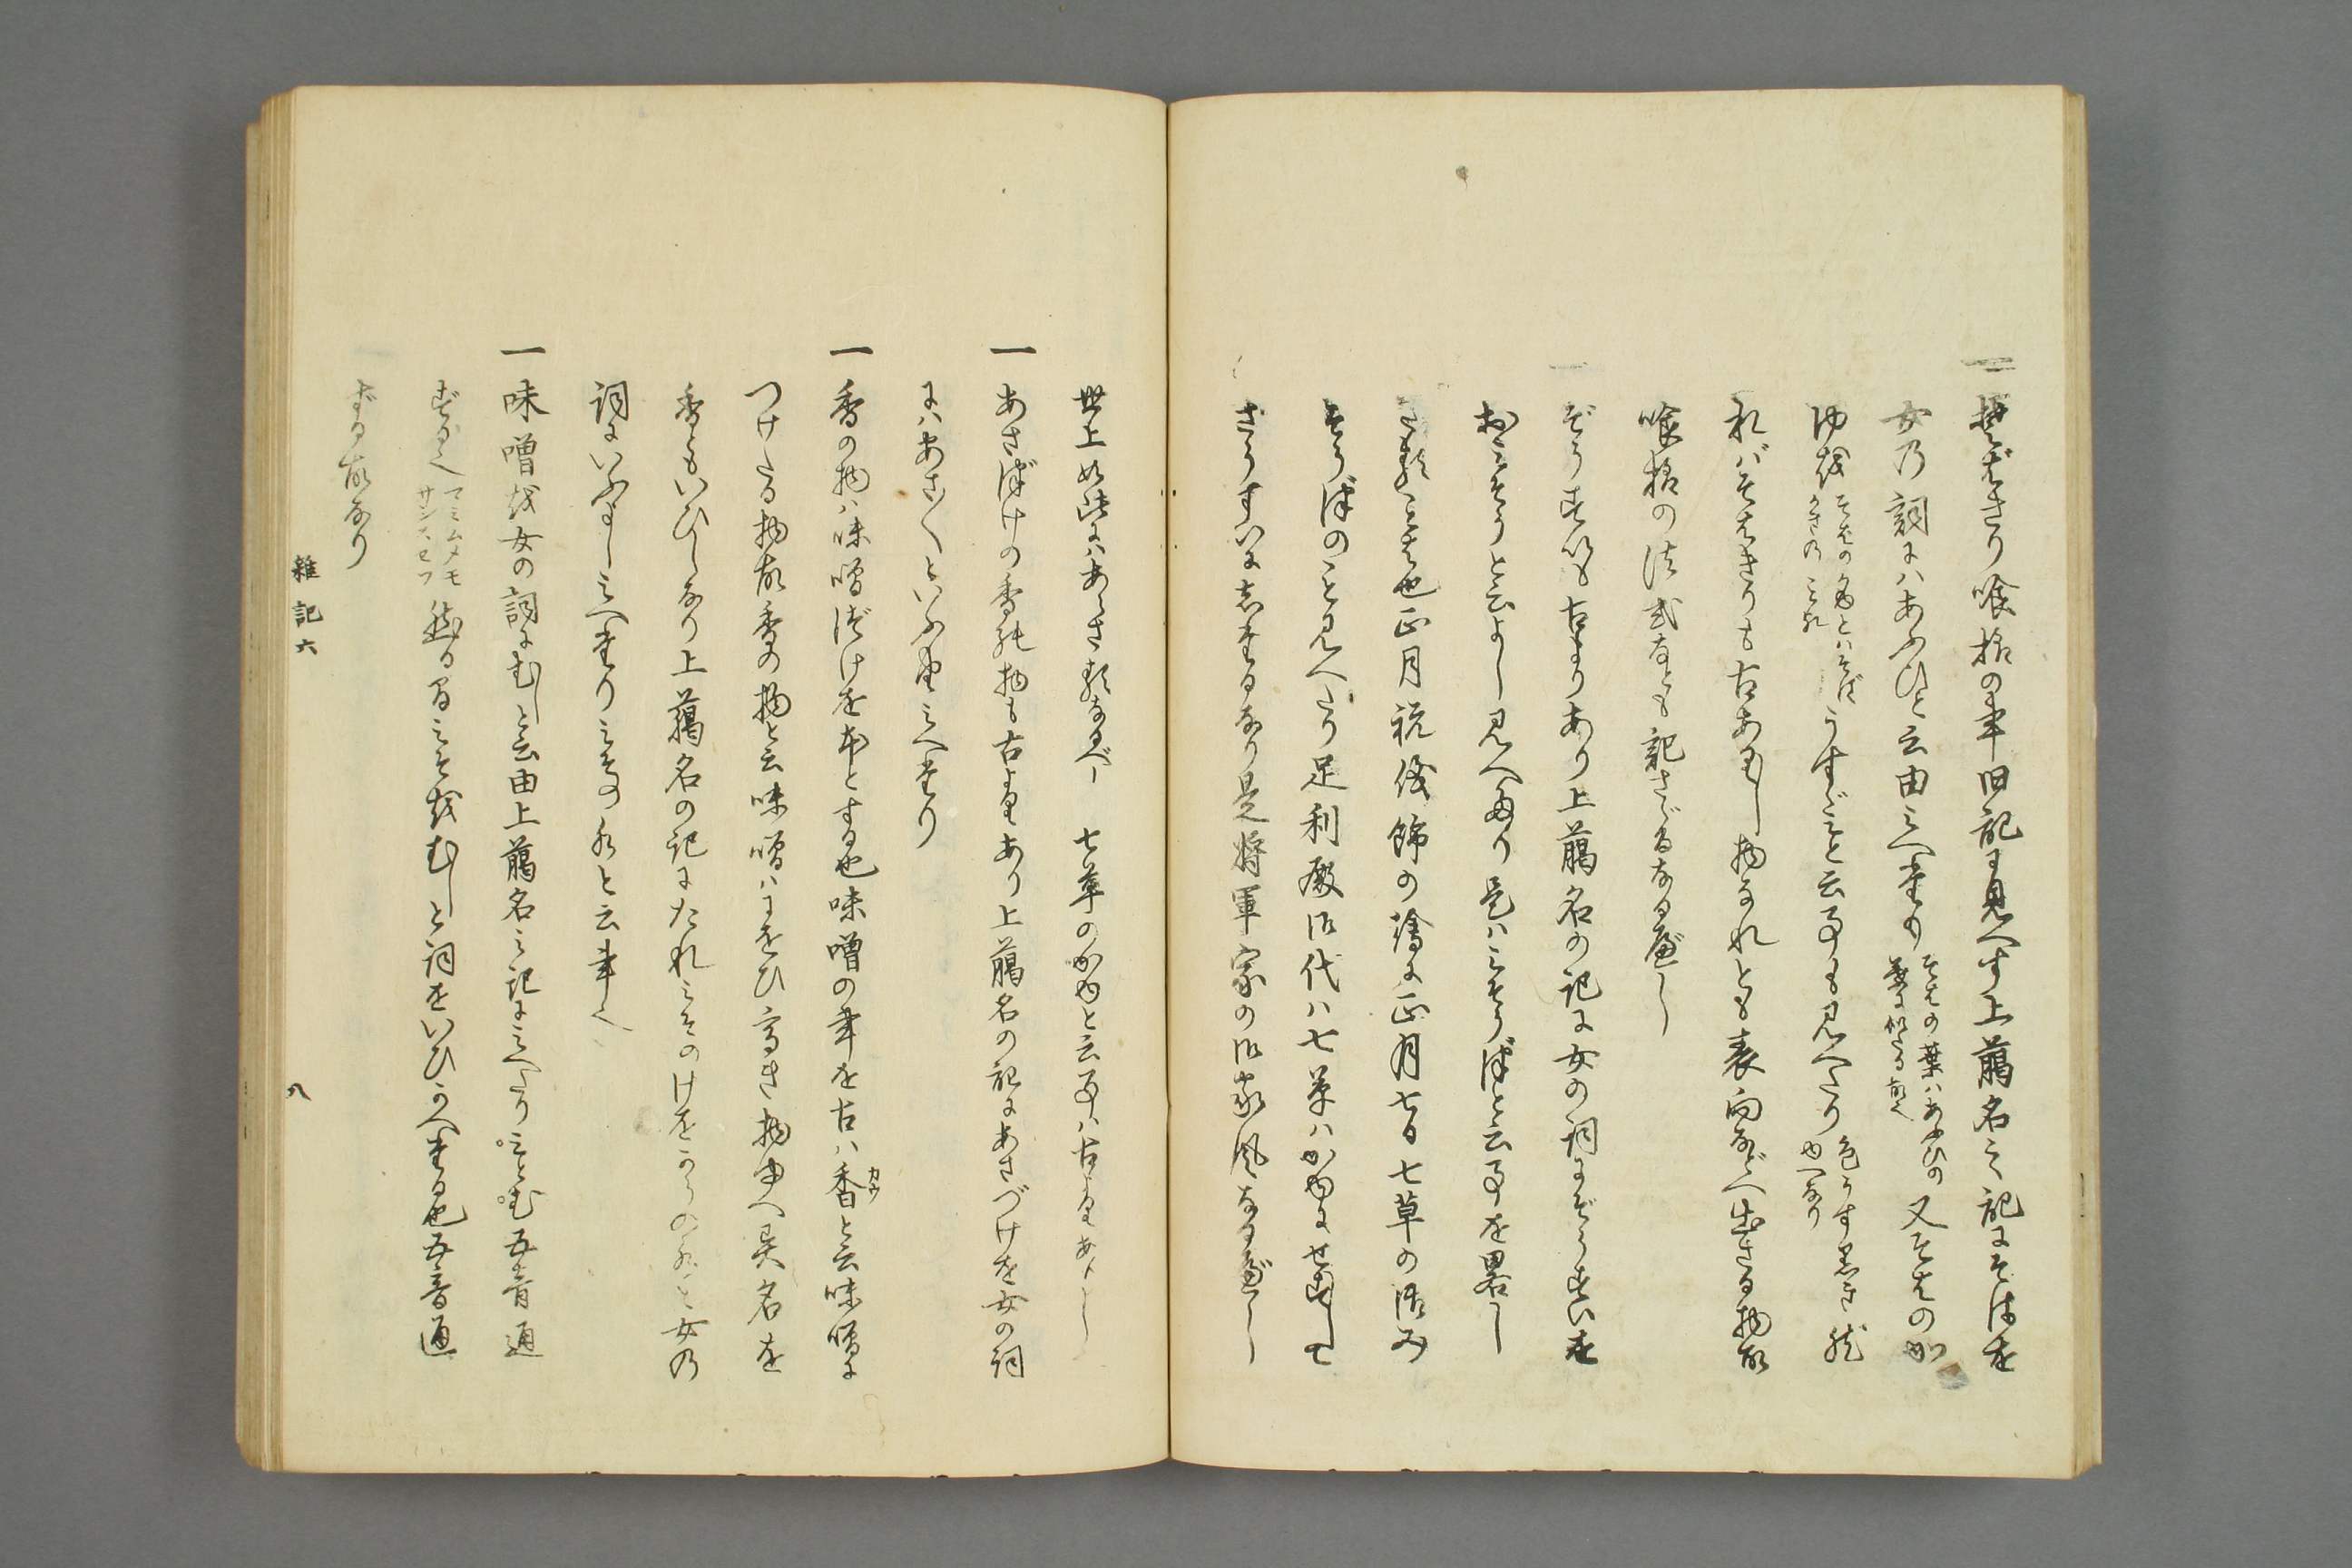 一 そばきり喰様の事旧記に見へす上臈名之記にそばを
女の詞にハあふひと云由みへたり そばの葉ハあふひの葉に似たる故也 又そばのか
ゆを そばのかゆとハそばがきの事 うすゞみと云事も見へたり 色うすくろきゆへなり 然
れバそばきりも古ありし物なれとも表向などへ出さる物故
喰様の法式なども記さゞるなるべし
一 ぞうすいも古よりあり上臈名の記に女の詞にぞうすいを
おみそうと云よし見へたり是ハみそうづと云事を略し
たる詞也正月祝儀飾の論に正月七日七草の御み
そうづのこと見へたり足利殿御代ハ七草ハかゆにせずして
ざうすいにしたるなり是将軍家の御家風なるべし
世上如此にハあらざるなるべし 七草のかゆと云事ハ古よりありし
一 あさづけの香の物も古よりあり上臈名の記にあさづけを女の詞
にハあさ〳〵といふよしみへたり
一 香の物ハ味噌漬けを本とする也味噌の事を古ハ香カウと云味噌に
つけたる物故香の物と云味噌ハにほひ高き物ゆへ異名を
香ともいひしなり上臈名の記にたれみそのけをかうの水と女の
詞にいふよしみへたりみその水と云事也
一 味噌を女の詞にむしと云由上臈名之記にみへたりみとむ五音通
ずる也 マミムメモ サシスセソ 然る間みそをむしと詞をいひかへたる也五音通
ずる故なり
雑記六
八